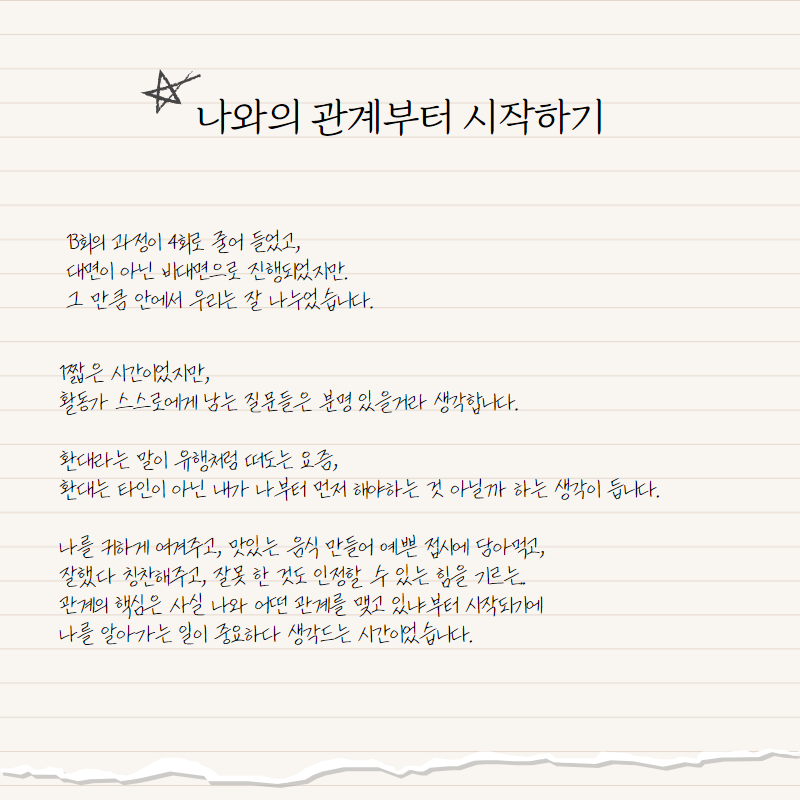 나와의 관계부터 시작하기
13회의 과정이 4회로 줄어 들었고,
대면이 아닌 비대면으로 진행되었지만.
그 만큼 안에서 우리는 잘 나누었습니다.
1짧은 시간이었지만,
활동가 스스로에게 남는 질문들은 분명 있을거라 생각합니다.
환대라는 말이 유행처럼 떠도는 요즘,
환대는 타인이 아닌 내가 나부터 먼저 해야하는 것 아닐까 하는 생각이 듭니다.
나를 귀하게 여겨주고, 맛있는 음식 만들어 예쁜 접시에 담아먹고,
잘했다 칭찬해주고, 잘못 한 것도 인정할 수 있는 힘을 기르는..
관계의 핵심은 사실 나와 어떤 관계를 맺고 있나부터 시작되기에
나를 알아가는 일이 중요하다 생각드는 시간이었습니다.